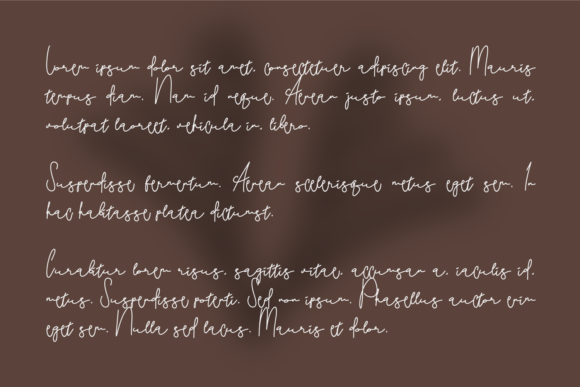 Lorem ipsum dolor sit amet, consectetuer adipiscing elit. Mauris
tempus diam. Nam id neque. Aenean justo ipsum, luctus ut,
volutpat laoreet, vehicula in, libero.
Suspendisse fermentum. Aenean scelerisque metus eget sem. In
hac habitasse platea dictumst.
Curabitur lorem risus, sagittis vitae, accumsan a, iaculis id,
metus. Suspendisse potenti. Sed non ipsum. Phasellus auctor enim
eget sem. Nulla sed lacus. Mauris et dolor.